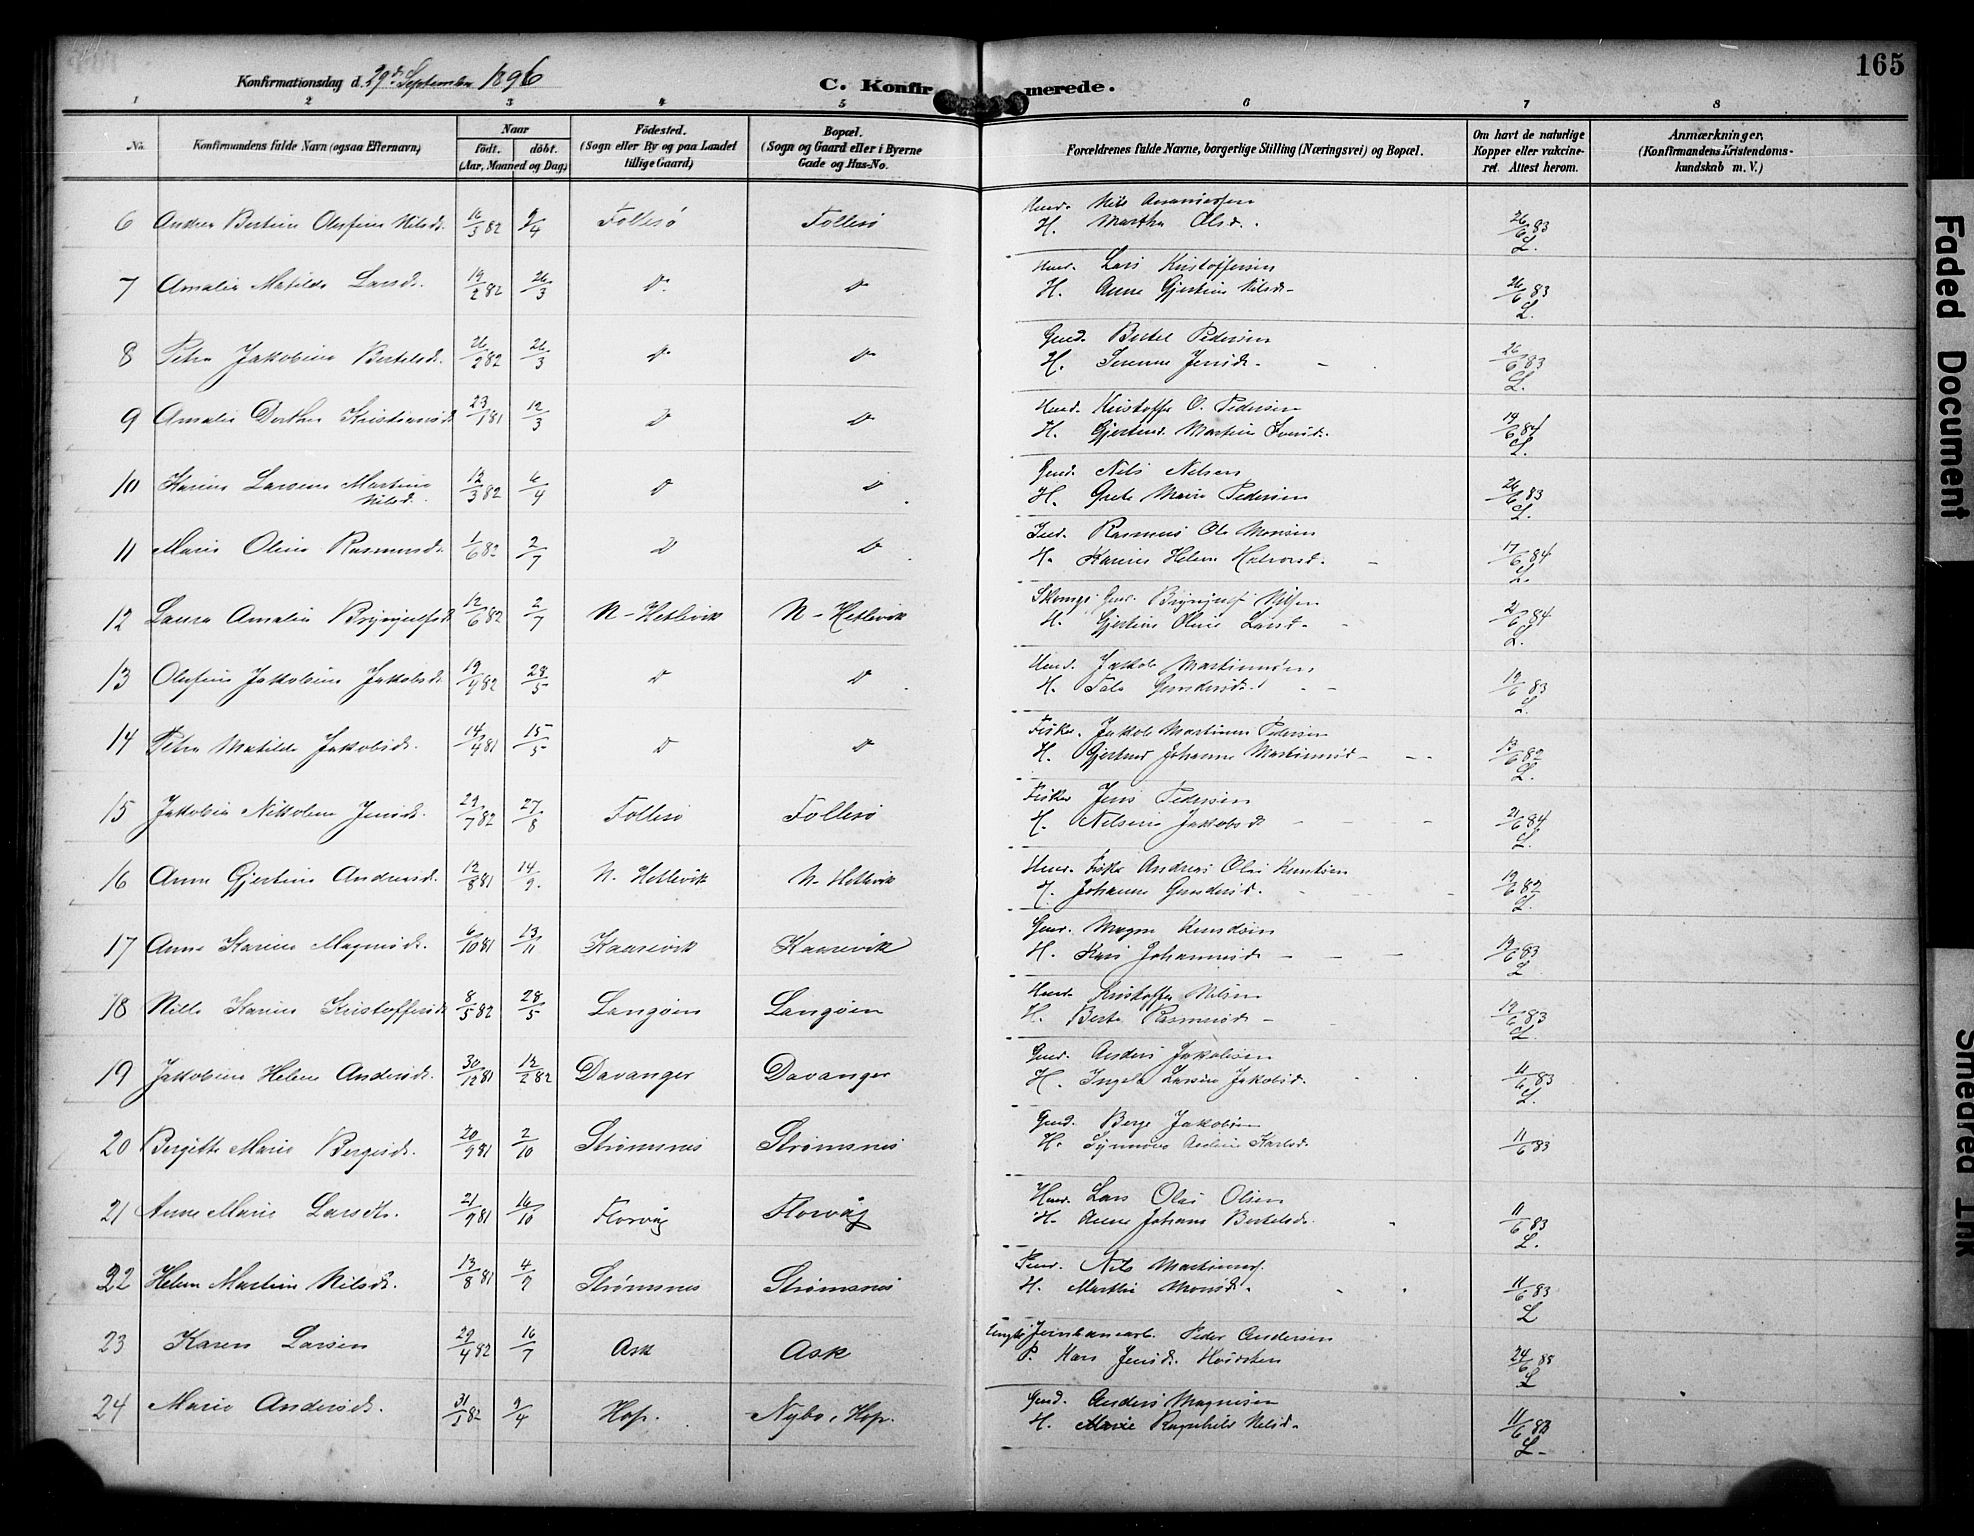 165
Konfirmationsdag d. 29de September 1896
C. Konfirmerede.
1 2 3 4 5 6 7 8
No.
Konfirmandens fulde Navn (ogsaa Efternavn)
Naar
födt. döbt.
(Aar, Maaned og Dag)
Födested.
(Sogn eller By og paa Landet
tillige Gaard)
Bopæl.
(Sogn og Gaard eller i Byerne
Gade og Hus-No.
Forældrenes fulde Navne, borgerlige Stilling (Næringsvei) og Bopæl.
Om havt de naturlige
Kopper eller vakcine-
ret. Attest herom.
Anmærkninger.
(Konfirmandens Kristendoms-
kundskab m. V.)
6 Andrea Bertine Olefine Nilsd. 16/3 82 9/4 Follesö Follesö
H. Martha Olsd. 26/6 83
L.
7 Amalie Matilde Larsd. 19/2 82 26/3 Do Do
Lars Kristoffersen
H. Anne Gjertine Nilsd. 26/6 83
L.
8 Petra Jakobine Bertelsd. 26/2 82 26/3 Do Do
Gmd. Bertel Pedersen
H. Serene Jensd. 26/6 83
L.
9 Amalie Dorthea 23/1 81 12/3 D Do
Kristoffer O. Pedersen
H. Gjertrud Martine 19/6 84
L.
10 Karine Larsine Martine
Nilsd. 12/3 82 6/4 D D
Gmd. Nils Nilsen
H. Grete Marie Pedersen 26/6 83
L.
11 Marie Oline Rasmusd. 1/6 82 2/7 D D
Rasmus Ole Monsen
H. Karine Helene Halvorsd. 17/6 84
L.
12 Laura Amalie Brynjulfsd. 12/6 82 2/7 N-Hetlevik N-Hetlevik
Brynjulf Nilsen
H. Gjertine Oline Larsd. 21/6 84
L.
13 Olefine Jakobine Jakobsd. 19/4 82 28/5 D D
Jakob Martinusen
H. Gundersd. 19/6 83
L.
14 Petra Matilde Jakobsd. 14/4 81 15/5 D D
Fisker. Jakob Martinus Pedersen
H. Gjertrud Johanne Martinusd. 13/6 82
L.
15 Jakobine Nikoline Jensd. 29/7 82 27/8 Follesö Follesö
Fisker Jens Pedersen
H. Nilsine Jakobsd. 21/6 84
L.
16 Anne Gjertine Andersd. 12/8 81 14/9. N. Hetlevik N-Hetlevik
Fisker Andreas Olai Knudsen
H. Johanne Gundersd. 19/6 82
L.
17 Anne Karine Magnesd. 6/10 81 13/11 Kaarevik Kaarevik
Magne Knudsen
H. Kari Johannesd. 19/6 83
L
18 Nille Karine Kristoffersd. 8/5 82 28/5 Langöen Langöen
Kristoffer Nilsen
H. Berte Rasmusd. 19/6 83
L.
19 Jakobine Helene Andersd. 30/12 81 12/2 82 Davanger Davanger
Gmd. Anders Jakobsen
H. Ingeb. Larsine Jakobsd. 11/6 83
L.
20 Bergitte Marie Bergesd. 20/9 81 2/10 Strømsnes Strømsnes
Gmd. Berge Jakobsen
H. Synnove Karlsd. 11/6 83
21 Anne Marie Larsd. 21/9 81 16/10 Florvåg Florvåg
Lars Olai Olsen
H. Anne Johanne Bertelsd. 11/6 83
L.
22 Helene Martine Nilsd. 13/8 81 4/9 Strømsnes Strømsnes
Nils Martinus.
H. Marthe Monsd. 11/6 83
L
23 Karen Larsen 29/4 82 16/7 Ask Ask
Jernbanearb. Peder Andersen
P. Kari Jensd. 24/6 85
L
24 Marie Andersd. 31/1 82 9/4 Hop. Nybö, Hop.
Gmd. Anders Magnesen
H. Marie Ragnhild Nilsd. 11/6 83
L
Faded Document
Smeared Ink